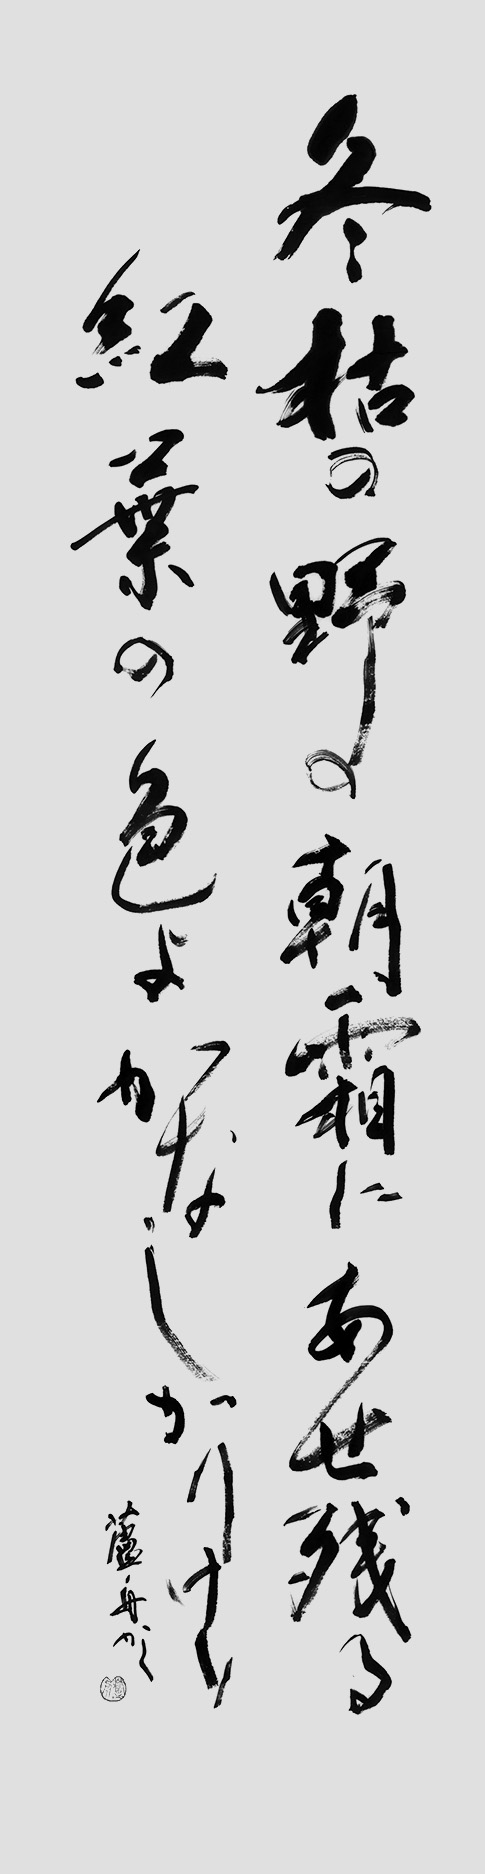 冬枯の野の朝霜にあせ残る
紅葉の色よかなしかりけり
蘆舟かく